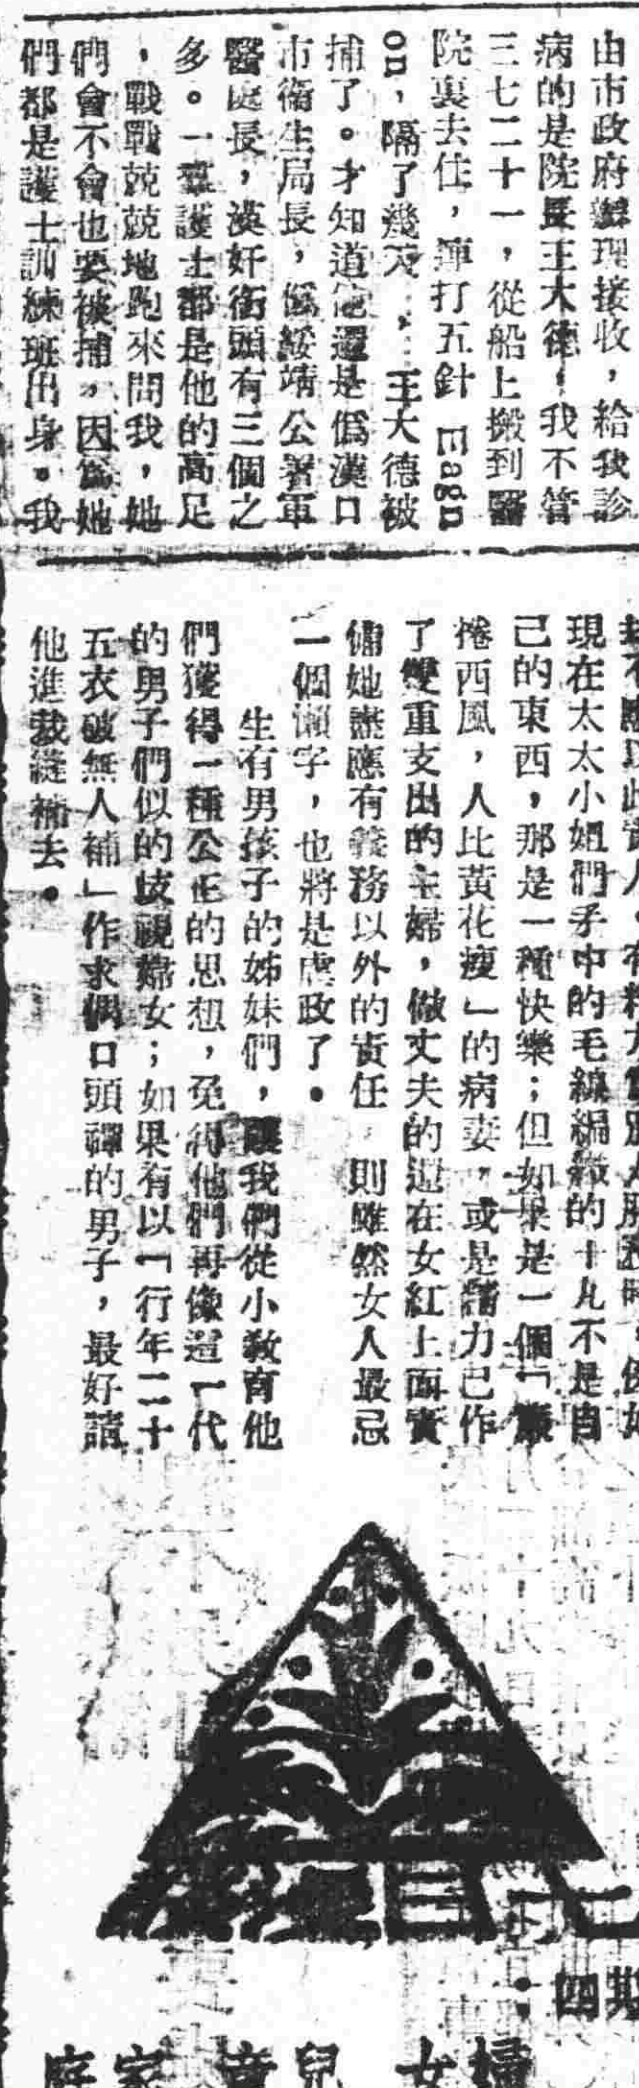 由市政府辦理接收，給我診
病的是院長王大德，我不管
三七二十一，從船上搬到醫
院裏去住，連打五針 Eagn
on，隔了幾天，王大德被
捕了。才知道他還是僞漢口
市衞生局長，僞綏靖公署軍
醫處長，漢奸銜頭有三個之
多。一羣護士都是他的高足
，戰戰兢兢地跑來問我，她
們會不會也要被捕，因爲她
們都是護士訓練班出身。我
現在太太小姐們手中的毛線編織的十九不是自
己的東西，那是一種快樂；但如果是一個「簾
捲西風，人比黃花瘦」的病妻，或是諸力已作
了雙重支出的主婦，做丈夫的還在女紅上面責
備她盡應有義務以外的責任，則雖然女人最忌
一個懶字，也將是虐政了。
生有男孩子的姊妹們，讓我們從小教育他
們獲得一種公正的思想，免得他們再像這一代
的男子們似的歧視婦女；如果有以「行年二十
五衣破無人補」作求偶口頭禪的男子，最好請
他進裁縫補去。
四期
婦女 兒童 家庭